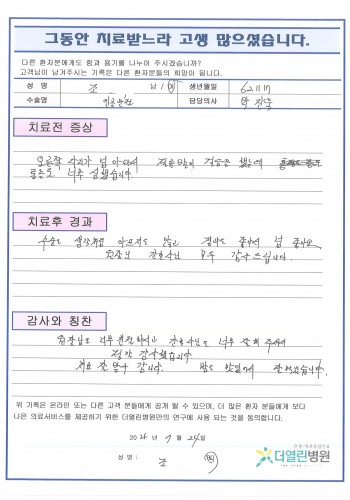 그동안 치료받느라 고생 많으셨습니다.
다른 환자분에게도 힘과 용기를 나누어 주시겠습니까?
고객님이 남겨주시는 기록은 다른 환자분들의 희망이 됩니다.
성 명 조 남 / 여 생년월일
수술명 인공관절 담당의사
치료전 증상
오른쪽 다리가 넘 아파서
통증도 너무 심했습니다
치료후 경과
수술도 생각처럼 아프지도 않고 경과도 좋아서 넘 좋아요
원장님 간호사님 모두 감사드립니다.
감사와 칭찬
원장님도 너무 친절하시고 간호사님도 너무 잘해 주셔서
정말 감사했습니다
치료 잘 받구 갑니다. 밥도 맛있게 잘 먹었습니다
위 기록은 온라인 또는 다른 고객 분들에게 공개 될 수 있으며, 더 많은 환자 분들에게 보다
나은 의료서비스를 제공하기 위한 더열린병원만의 연구에 사용 되는 것을 동의합니다.
년 월 24일
성 명 : 조
더열린병원